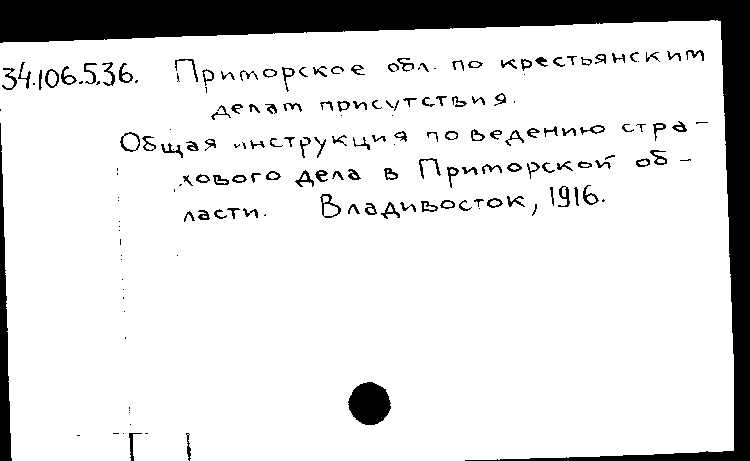 34.106.5.36. Приморское обл. по крестьянским
делам присутствия.
Общая инструкция по ведению стра-
хового дела в Приморской об-
ласти. Владивосток, 1916.